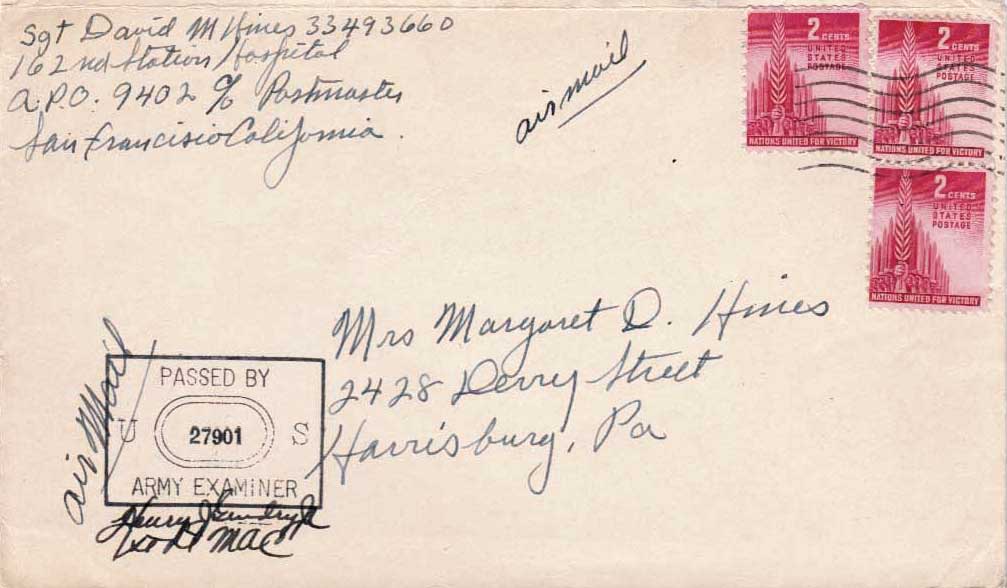 Sgt David M Hines 33493660
162nd Station Hospital
A.P.O. 9402 % Postmaster
San Francisio California.
air mail
2 CENTS
UNITED
STATES
POSTAGE
NATIONS UNITED FOR VICTORY
2 CENTS
UNITED
STATES
POSTAGE
NATIONS UNITED FOR VICTORY
2 CENTS
UNITED
STATES
POSTAGE
NATIONS UNITED FOR VICTORY
Mrs Margaret D. Hines
2428 Derry Street
Harrisburg, Pa
air Mail
PASSED BY
U 27901 S
ARMY EXAMINER
Henry
MAC